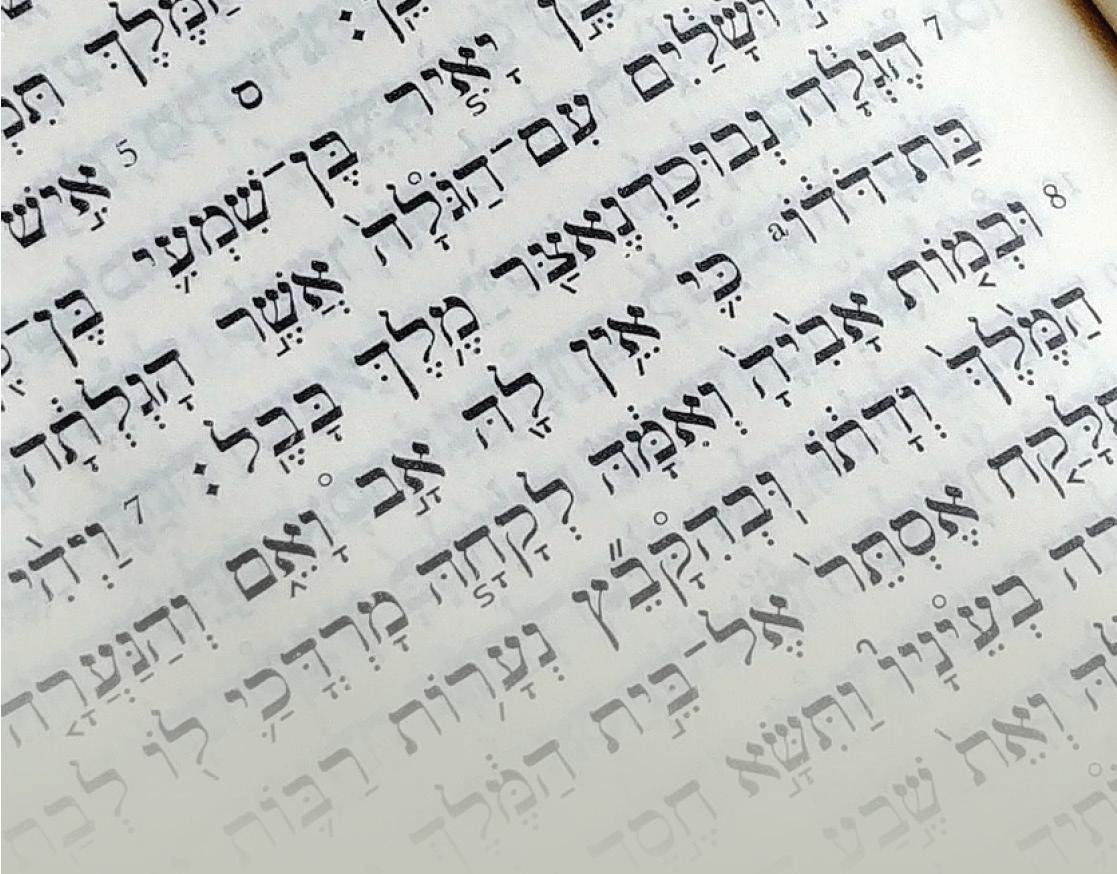 הַמֶּלֶךְ
כֵּן׃ ס 5 אִישׁ
בֶּן יָאִיר בֶּן־שִׁמְעִי בֶּן־
עִם־הַגֹּלָה אֲשֶׁר הָגְלְתָה
7 הֶגְלָה נְבוּכַדְנֶאצַּר מֶלֶךְ בָּבֶל׃ 7 וַיְהִי
בַּת־דֹּדוֹ a כִּי אֵין לָהּ אָב וָאֵם וְהַנַּעֲרָה
8 וּבְמוֹת אָבִיהָ וְאִמָּהּ לְקָחָהּ מָרְדֳּכַי לוֹ לְבַת
הַמֶּלֶךְ וְדָתוֹ וּבְהִקָּבֵץ נְעָרוֹת רַבּוֹת
אֶסְתֵּר אֶל־בֵּית הַמֶּלֶךְ
בְעֵינָיו וַתִּשָּׂא חֶסֶד
וְאֵת שֶׁבַע